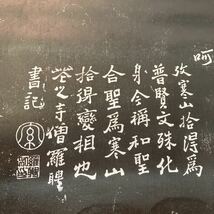 呵
攷寒山拾得爲
普賢文殊化
身今稱和聖
合聖爲寒山
拾得變相也
花之寺僧羅聘
書記